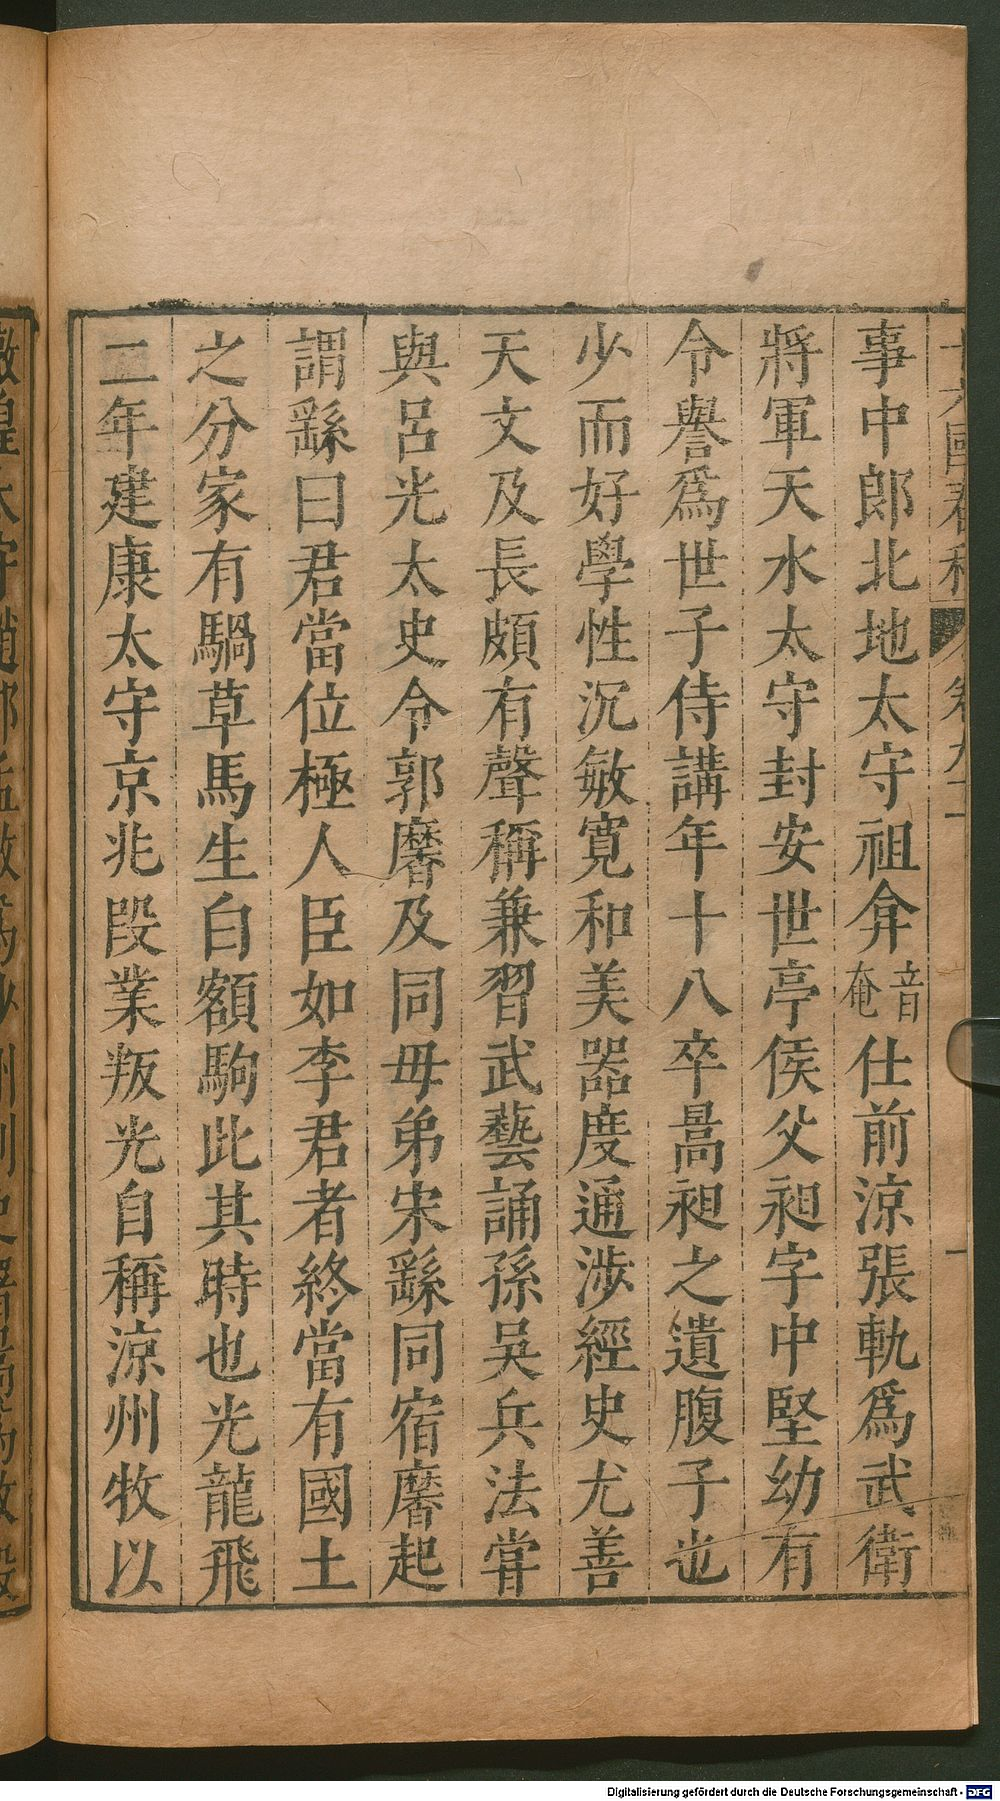 事中郎北地太守祖弇音奄仕前涼張軌爲武衛
將軍天水太守封安世亭侯父昶字中堅幼有
令譽爲世子侍講年十八卒暠昶之遺腹子也
少而好學性沉敏寬和美器度通涉經史尤善
天文及長頗有聲稱兼習武藝誦孫吳兵法甞
與呂光太史令郭黁及同母弟宋繇同宿黁起
謂繇曰君當位極人臣如李君者終當有國土
之分家有騧草馬生白額駒此其時也光龍飛
二年建康太守京兆段業叛光自稱涼州牧以
Digitalisierung gefördert durch die Deutsche Forschungsgemeinschaft - DFG